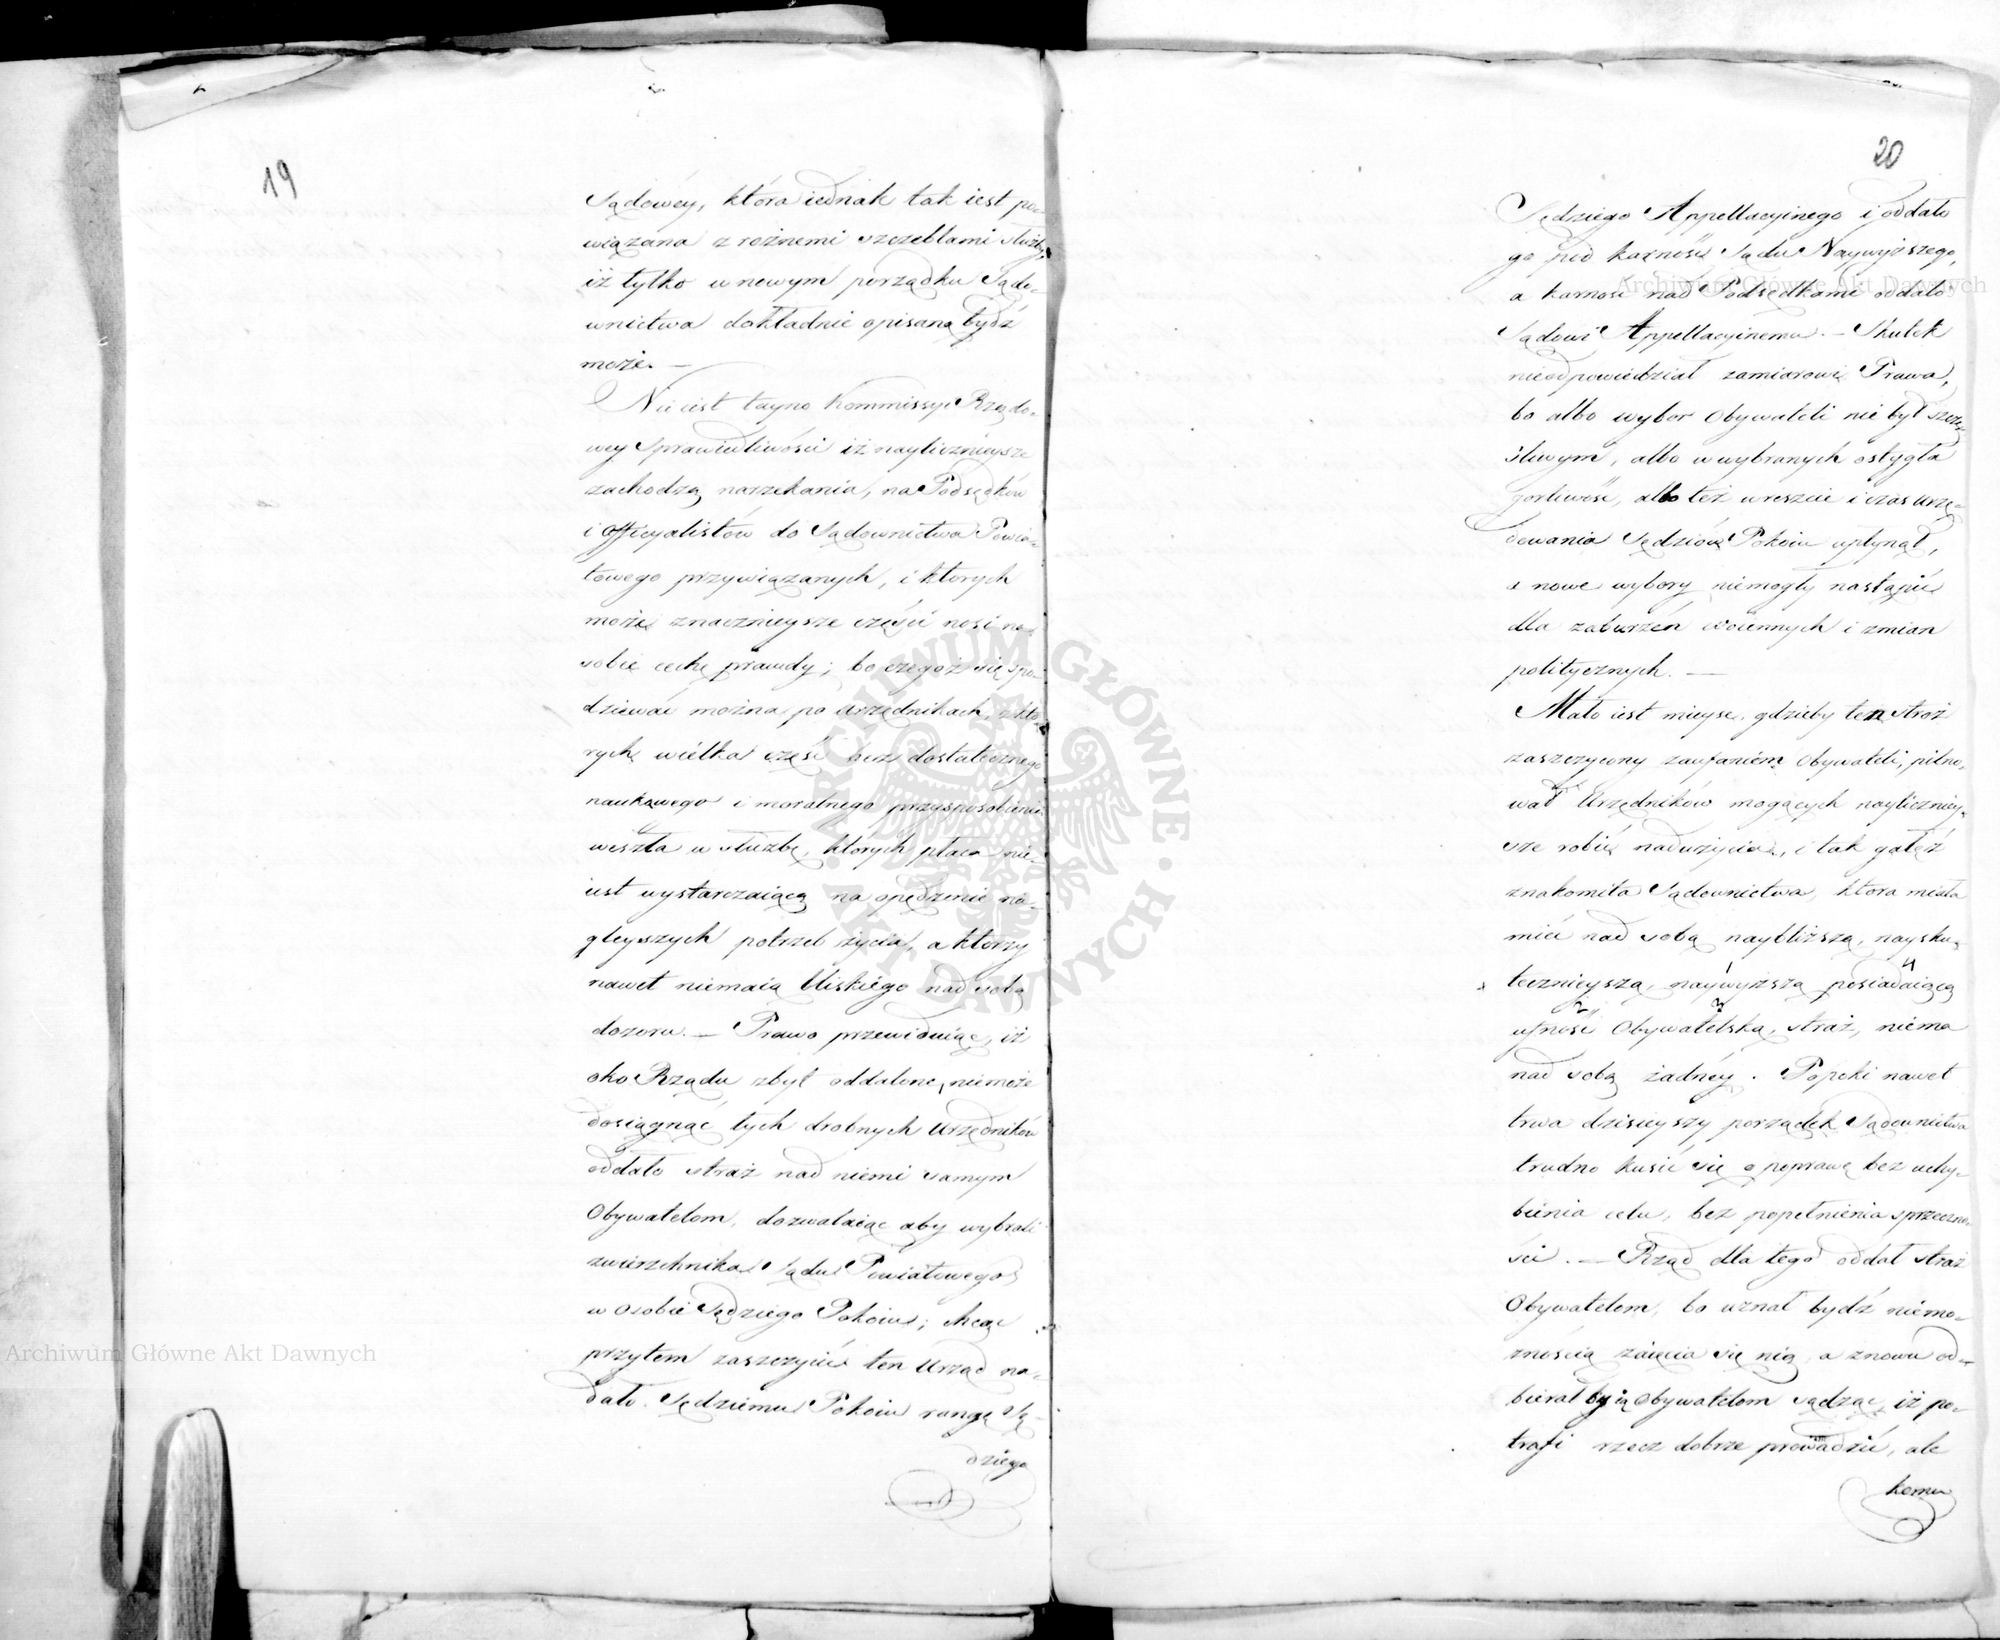 19
Sądowéy, która iednak tak iest po-
wiązana z rożnemi szczeblami służby,
iż tylko w nowym porządku Sądo-
wnictwa dokładnie opisaną bydź
może. —
Nie iest tayno Kommissyi Rządo-
wey Sprawiedliwości iż naylicznieysze
zachodzą narzekania, na Podsędków
i officyalistów do Sądownictwa Powia-
towego przywiązanych, i których
może znacznieysze część nosi na
sobie cechę prawdy; bo czegoż się spo-
dziewać można po Urzędnikach, z któ-
rych wielka część bez dostatecznego
naukowego i moralnego przysposobienia
weszła w służbę, których płaca nie-
iest wystarczaiącą na opędzenie na-
gleyszych potrzeb życia, a którzy
nawet niemaią bliskiego nad sobą
dozoru. — Prawo przewiduiąc, iż
oko Rządu zbyt oddalone, niemoże
dosiągnąć tych drobnych Urzędników
oddało straż nad niemi samym
Obywatelom, dozwalaiąc aby wybrali
zwierzchnika Sądu Powiatowego
w osobie Sędziego Pokoiu; chcąc
przytem zaszczycić ten Urząd na-
dało Sędziemu Pokoiu rangę Sę-
dziego
20
Sędziego Appellacyinego i oddało
go pod karność Sądu Naywyższego,
a karność nad Podsędkami oddało
Sądowi Appellacyinemu. — Skutek
nieodpowiedział zamiarowi Prawa,
bo albo wybor Obywateli nie był szczę-
śliwym, albo w wybranych ostygła
gorliwość, albo też wreszcie i czas urzę-
dowania Sędziów Pokoiu upłynął,
a nowe wybory niemogły nastąpić
dla zaburzeń woiennych i zmian
politycznych. —
Mało iest mieysc, gdzieby ten stroż
zaszczycony zaufaniem Obywateli, pilno-
wał Urzędników mogących nayliczniey-
sze robić nadużycia, i tak gałęź
znakomita Sądownictwa, która miała
mieć nad sobą naybliższą, naysku-
tecznieyszą, naywyższą posiadaiącą
ufność Obywatelską, straż, niema
nad sobą żadnéy. Popóki nawet
trwa dzisieyszy porządek Sądownictwa
trudno kusić się o poprawę bez uchy-
bienia celu, bez popełnienia sprzeczno-
ści. — Rząd dla tego oddał straż
Obywatelom, bo uznał bydź niemo-
żnością zaięcia się nią, a znowu od-
bierał by ią Obywatelom sądząc, iż po-
trafi rzecz dobrze prowadzić, ale
komu
Archiwum Główne Akt Dawnych
Archiwum Główne Akt Dawnych
ARCHIWUM GŁÓWNE · AKT DAWNYCH ·